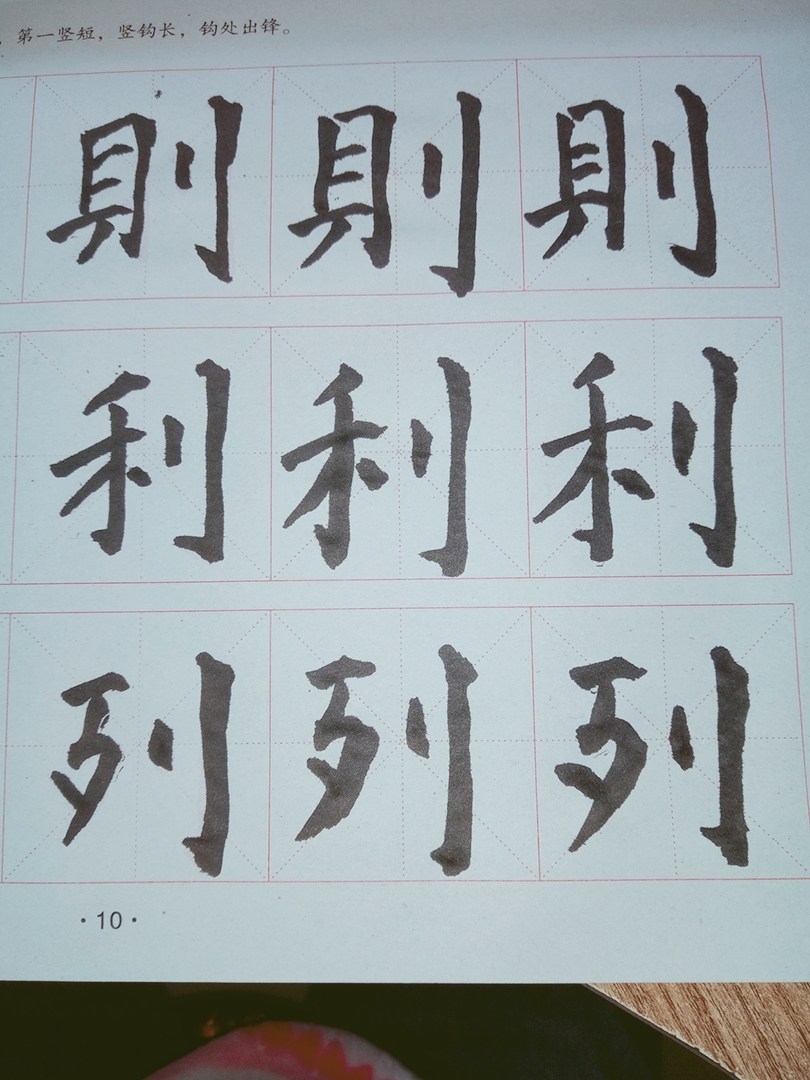 ，第一竖短，竖钩长，钩处出锋。
則 則 則
利 利 利
列 列 列
·10·